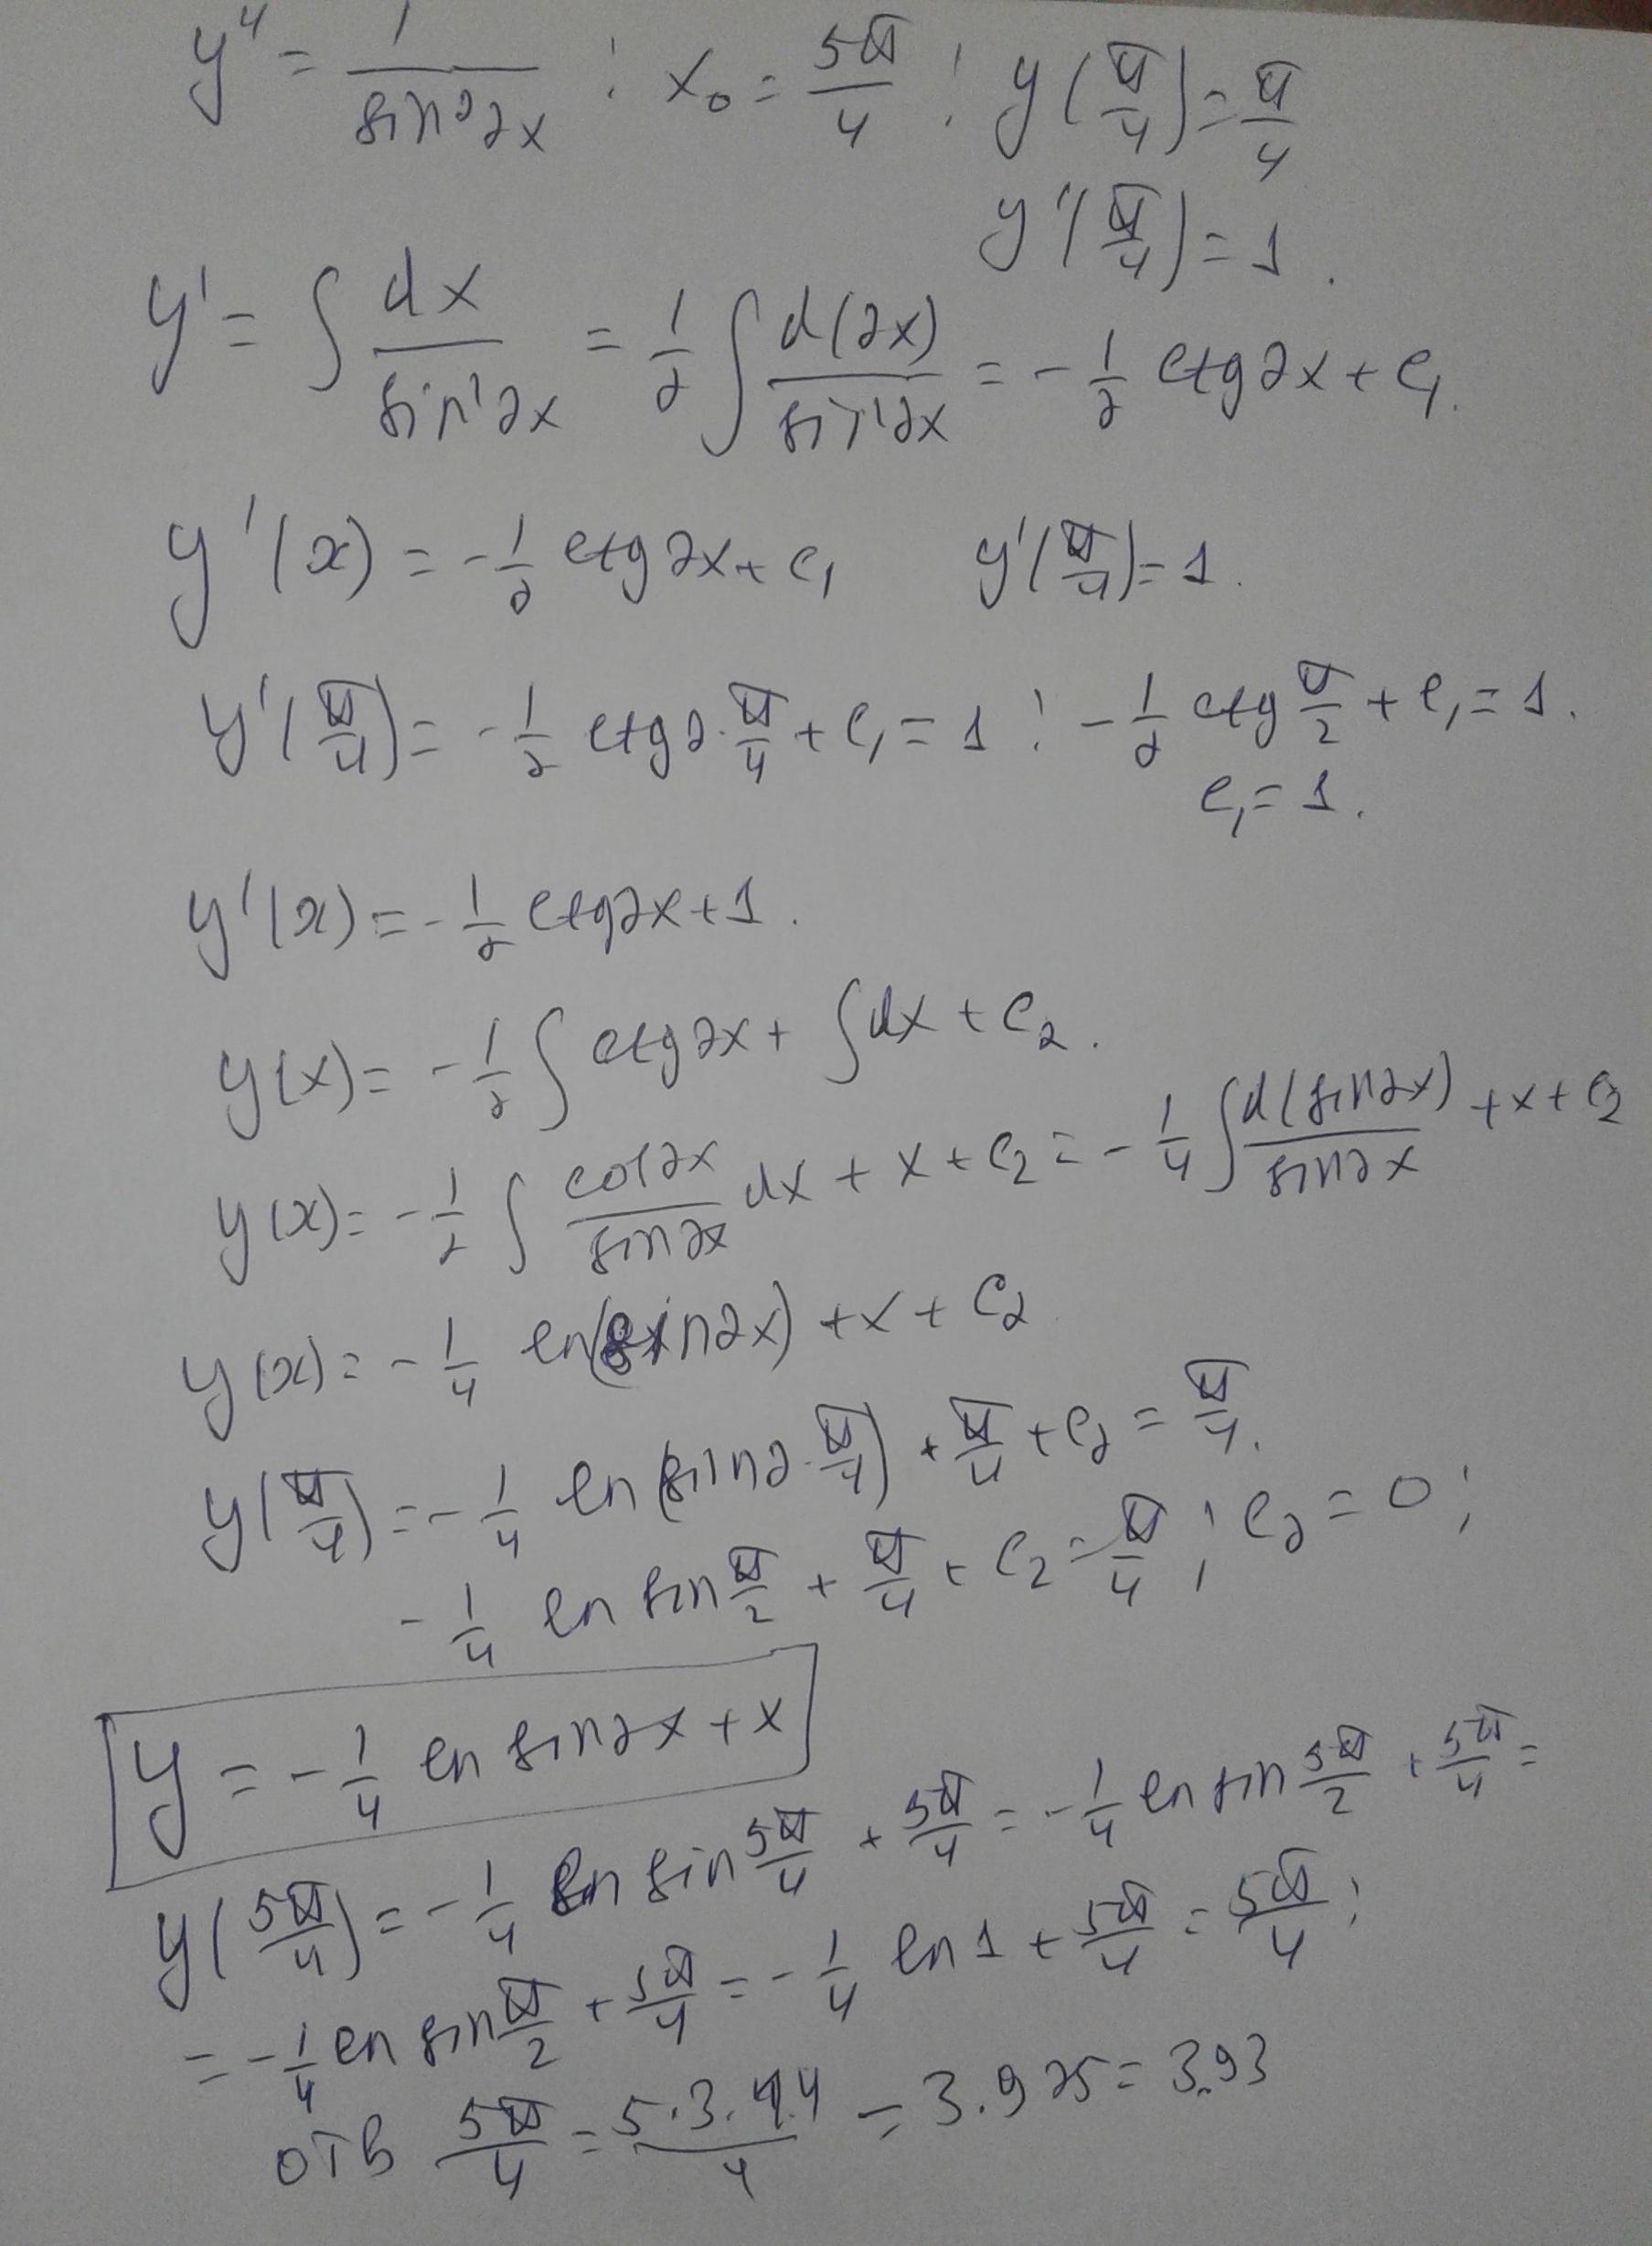 y'' = 1/sin²2x ; x₀ = 5π/4 ; y(π/4) = π/4
y'(π/4) = 1.
y' = ∫ dx/sin²2x = 1/2 ∫ d(2x)/sin²2x = - 1/2 ctg2x + c₁.
y'(x) = - 1/2 ctg2x + c₁ y'(π/4) = 1.
y'(π/4) = - 1/2 ctg2·π/4 + c₁ = 1 ; - 1/2 ctg π/2 + c₁ = 1.
c₁ = 1.
y'(x) = - 1/2 ctg2x + 1.
y(x) = - 1/2 ∫ ctg2x + ∫dx + c₂.
y(x) = - 1/2 ∫ cos2x/sin2x dx + x + c₂ = - 1/4 ∫ d(sin2x)/sin2x + x + c₂
y(x) = - 1/4 ln(sin2x) + x + c₂
y(π/4) = - 1/4 ln(sin2·π/4) + π/4 + c₂ = π/4.
- 1/4 ln sin π/2 + π/4 + c₂ = π/4 ; c₂ = 0 ;
y = - 1/4 ln sin2x + x
y(5π/4) = - 1/4 ln sin 5π/4 + 5π/4 = - 1/4 ln sin 5π/2 + 5π/4 =
= - 1/4 ln sin π/2 + 5π/4 = - 1/4 ln 1 + 5π/4 = 5π/4 ;
ОТВ 5π/4 = 5·3.14/4 = 3.925 = 3.93